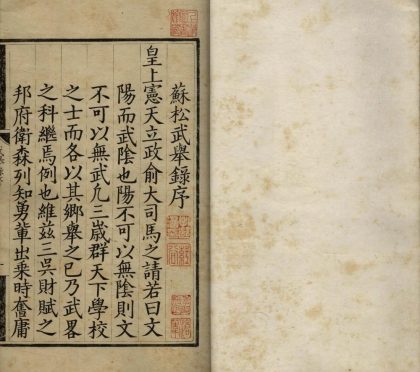 蘇松武舉錄序
皇上憲天立政俞大司馬之請若曰文
陽而武陰也陽不可以無陰則文
不可以無武凡三歲群天下學校
之士而各以其鄉舉之已乃武畧
之科繼焉例也維茲三吳財賦之
邦府衛森列知勇輩出乘時奮庸